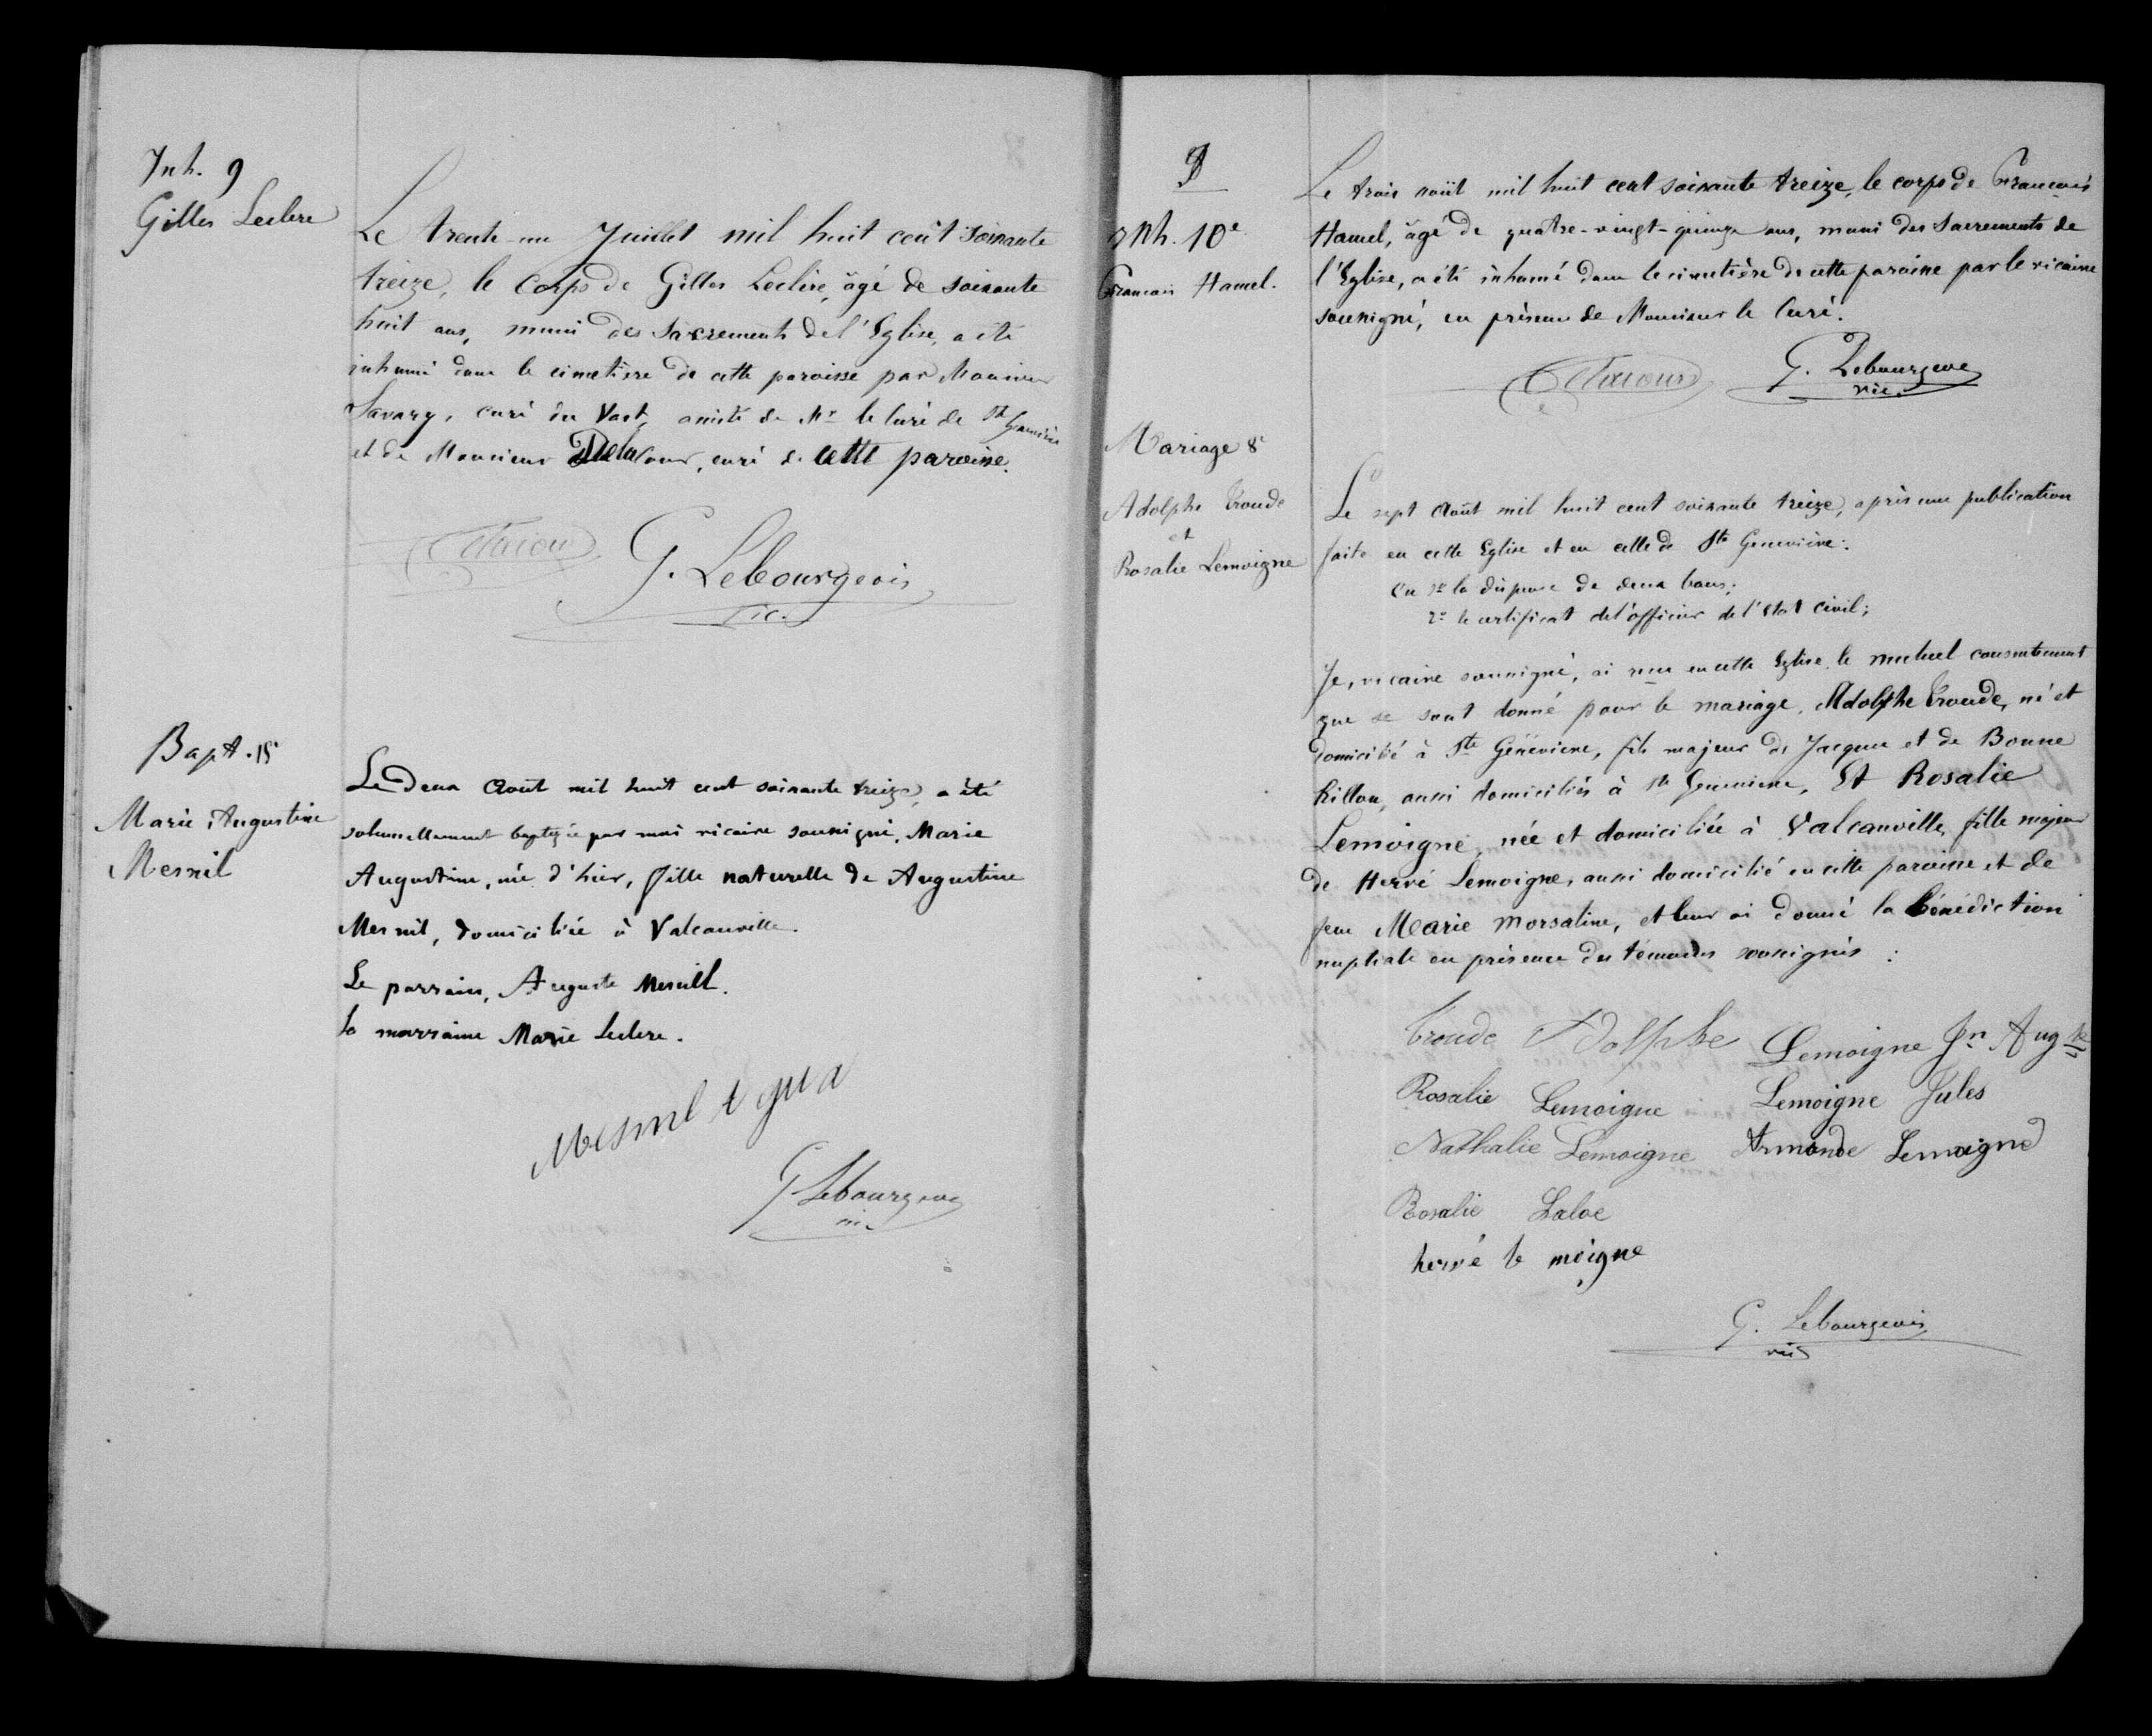 Inh. 9
Gilles Leclere
Le trente-un Juillet mil huit cent soixante
treize, le corps de Gilles Leclère, âgé de soixante
huit ans, muni des Sacrements de l'Eglise, a été
inhumé dans le cimetière de cette paroisse par Monsieur
Savary, curé du Vast, assisté de Mr le Curé de Ste Geneviève
et de Monsieur Delacour, curé de cette paroisse.
G. Lebourgeois
vic.
Bapt. 15
Marie Augustine
Mesnil
Le deux Août mil huit cent soixante treize, a été
solennellement baptisée par moi vicaire soussigné, Marie
Augustine, née d'hier, fille naturelle de Augustine
Mesnil, domiciliée à Valcanville.
Le parrain, Auguste Mesnill.
la marraine Marie Leclere.
Mesnil
G Lebourgeois
vic.
Inh. 10e
François Hamel.
Le trois août mil huit cent soixante treize, le corps de François
Hamel, âgé de quatre-vingt-quinze ans, muni des Sacrements de
l'Eglise, a été inhumé dans le cimetière de cette paroisse par le vicaire
soussigné, en présence de Monsieur le Curé.
G. Lebourgeois
vic.
Mariage 8e
Adolphe Troude
et
Rosalie Lemoigne
Le sept Août mil huit cent soixante treize, après une publication
faite en cette Eglise et en celle de Ste Geneviève:
Vu 1º la dispense de deux bans;
2º le certificat de l'officier de l'Etat civil;
Je, vicaire soussigné, ai reçu en cette Eglise le mutuel consentement
que se sont donné pour le mariage, Adolphe Troude, né et
domicilié à Ste Géneviève, fils majeur de Jacques et de Bonne
Rillon, aussi domiciliés à Ste Geneviève, Et Rosalie
Lemoigne, née et domiciliée à Valcanville, fille majeur
de Hervé Lemoigne, aussi domicilié en cette paroisse et de
feue Marie Morsaline, et leur ai donné la bénédiction
nuptiale en présence des témoins soussignés :
Troude Adolphe Lemoigne Jn Augte
Rosalie Lemoigne Lemoigne Jules
Nathalie Lemoigne Armande Lemoigne
Rosalie Laloe
hervé le moigne
G. Lebourgeois
vic